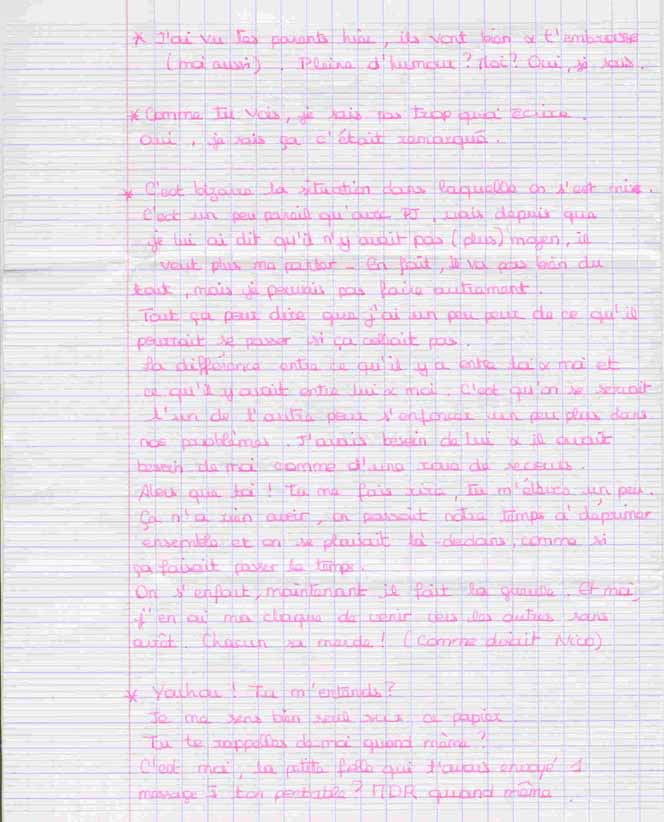 * J'ai vu tes parents hier, ils vont bien & t'embrasse
(moi aussi). Pleine d'humour? Moi? Oui, je sais.
* Comme tu vois, je sais pas trop quoi écrire.
Oui, je sais ça c'était remarqué.
* C'est bizarre la situation dans laquelle on s'est mise.
C'est un peu pareil qu'avec PJ, mais depuis que
je lui ai dit qu'il n'y avait pas (plus) moyen, il
veut plus me parler - En fait, il va pas bien du
tout, mais je pouvais pas faire autrement.
Tout ça pour dire que j'ai un peu peur de ce qu'il
pourrait se passer si ça collait pas.
La différence entre ce qu'il y a entre toi & moi et
ce qu'il y avait entre lui & moi. C'est qu'on se servait
l'un de l'autre pour s'enfoncer un peu plus dans
nos problèmes. J'avais besoin de lui & il avait
besoin de moi comme d'une roue de secours.
Alors que toi! Tu me fais rire, tu m'élèves un peu.
Ça n'a rien avoir, on passait notre temps à déprimer
ensemble et on se plaisait là-dedans, comme si
ça faisait passer le temps.
On s'enfout, maintenant il fait la gueule. Et moi,
j'en ai ma claque de venir vers les autres sans
arrêt. Chacun sa merde! (comme dirait Nico)
* Youhou! Tu m'entends?
Je me sens bien seule sur ce papier.
Tu te rappelles de moi quand même?
C'est moi, la petite folle qui t'avais envoyé 1
message à ton portable? MDR quand même